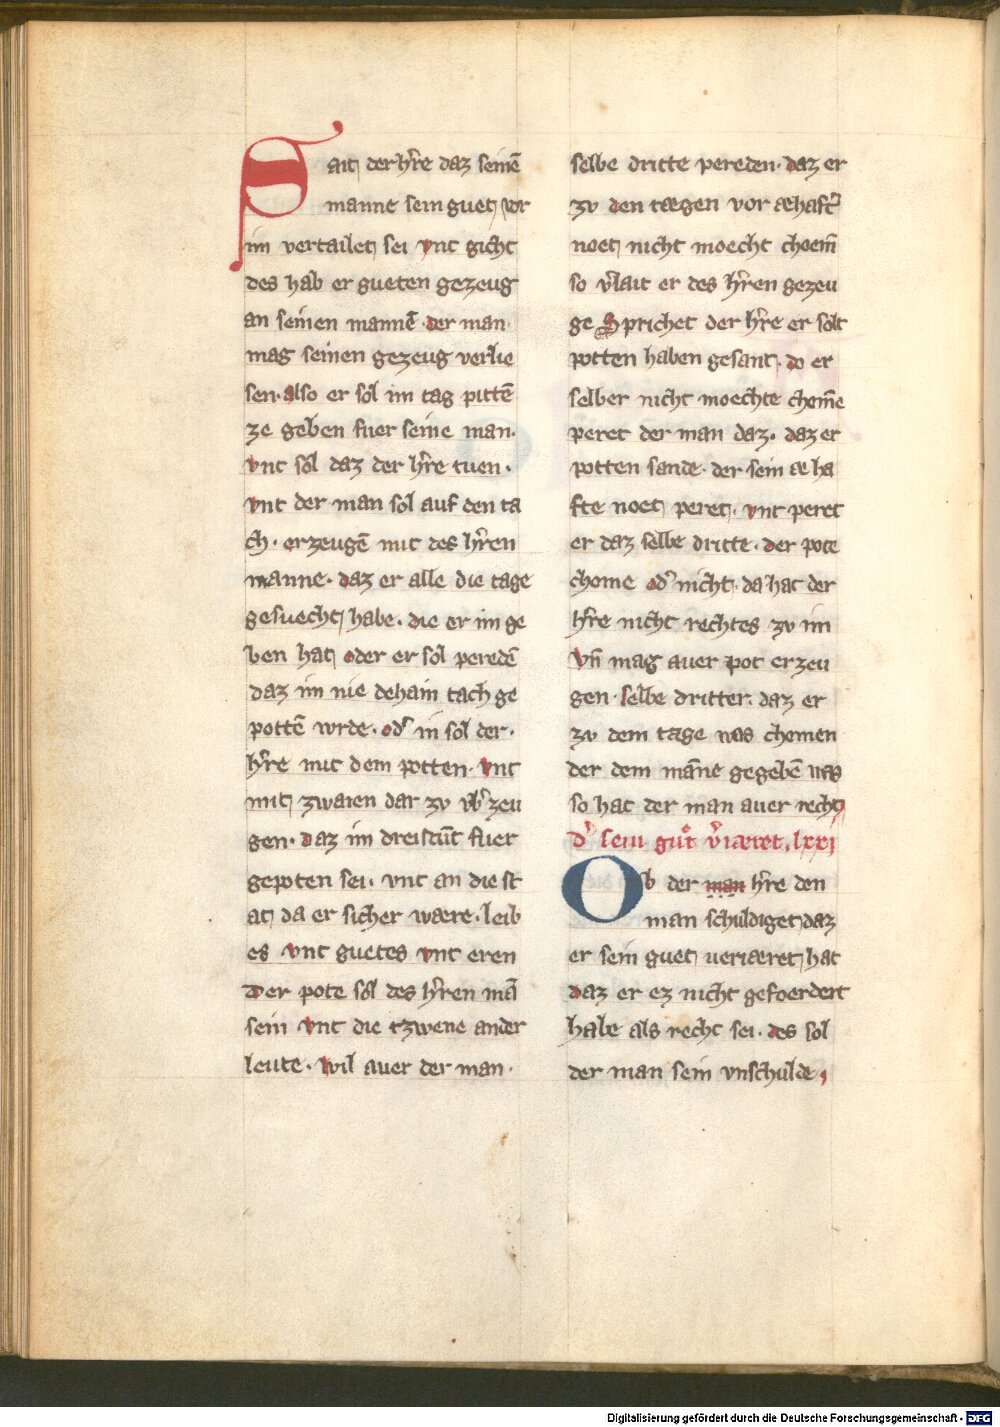 Sait der hr̄e daz seinē
manne sein guet vor
im vertailet sei vnt gicht
des hab er gueten gezeug
an seinen mannē · der man
mag seinen gezeug verlie
sen · also er sol im tag pittē
ze geben fuer seine man ·
vnt sol daz der hr̄e tuen ·
vnt der man sol auf den ta
ch · erzeugē mit des hr̄en
manne · daz er alle die tage
gesuecht habe · die er im ge
ben hat oder er sol peredē
daz im nie dehain tach ge
pottē wrde · od' in sol der ·
hr̄e mit dem potten · vnt
mit zwaien dar zv vb' zeu
gen · daz im dreistūt fuer
gepoten sei · vnt an die st
at da er sicher wære · leib
es vnt guetes vnt eren
Der pote sol des hr̄en mā
sein vnt die tzwene ander
leute · wil auer der man ·
selbe dritte pereden · daz er
zv den tægen vor æhaft'
noet nicht moecht choem̄
so v'lait er des hr̄en gezeu
ge Sprichet der hr̄e er solt
potten haben gesant · do er
selber nicht moechte chem̄e
peret der man daz · daz er
potten sande · der sein æ ha
fte noet peret · vnt peret
er daz selbe dritte · der pote
chome od' nicht · da hat der
hr̄e nicht rechtes zv im
vn̄ mag auer pot erzeu
gen · selbe dritter · daz er
zv dem tage was chemen
der dem māne gegebē was
so hat der man auer recht
d' sein guͦt v'iæret · lxxj
Ob der man hr̄e den
man schuldiget daz
er sein guet ueriæret hat
daz er ez nicht gefoerdert
habe als recht sei · des sol
der man sein vnschulde ,
Digitalisierung gefördert durch die Deutsche Forschungsgemeinschaft - DFG